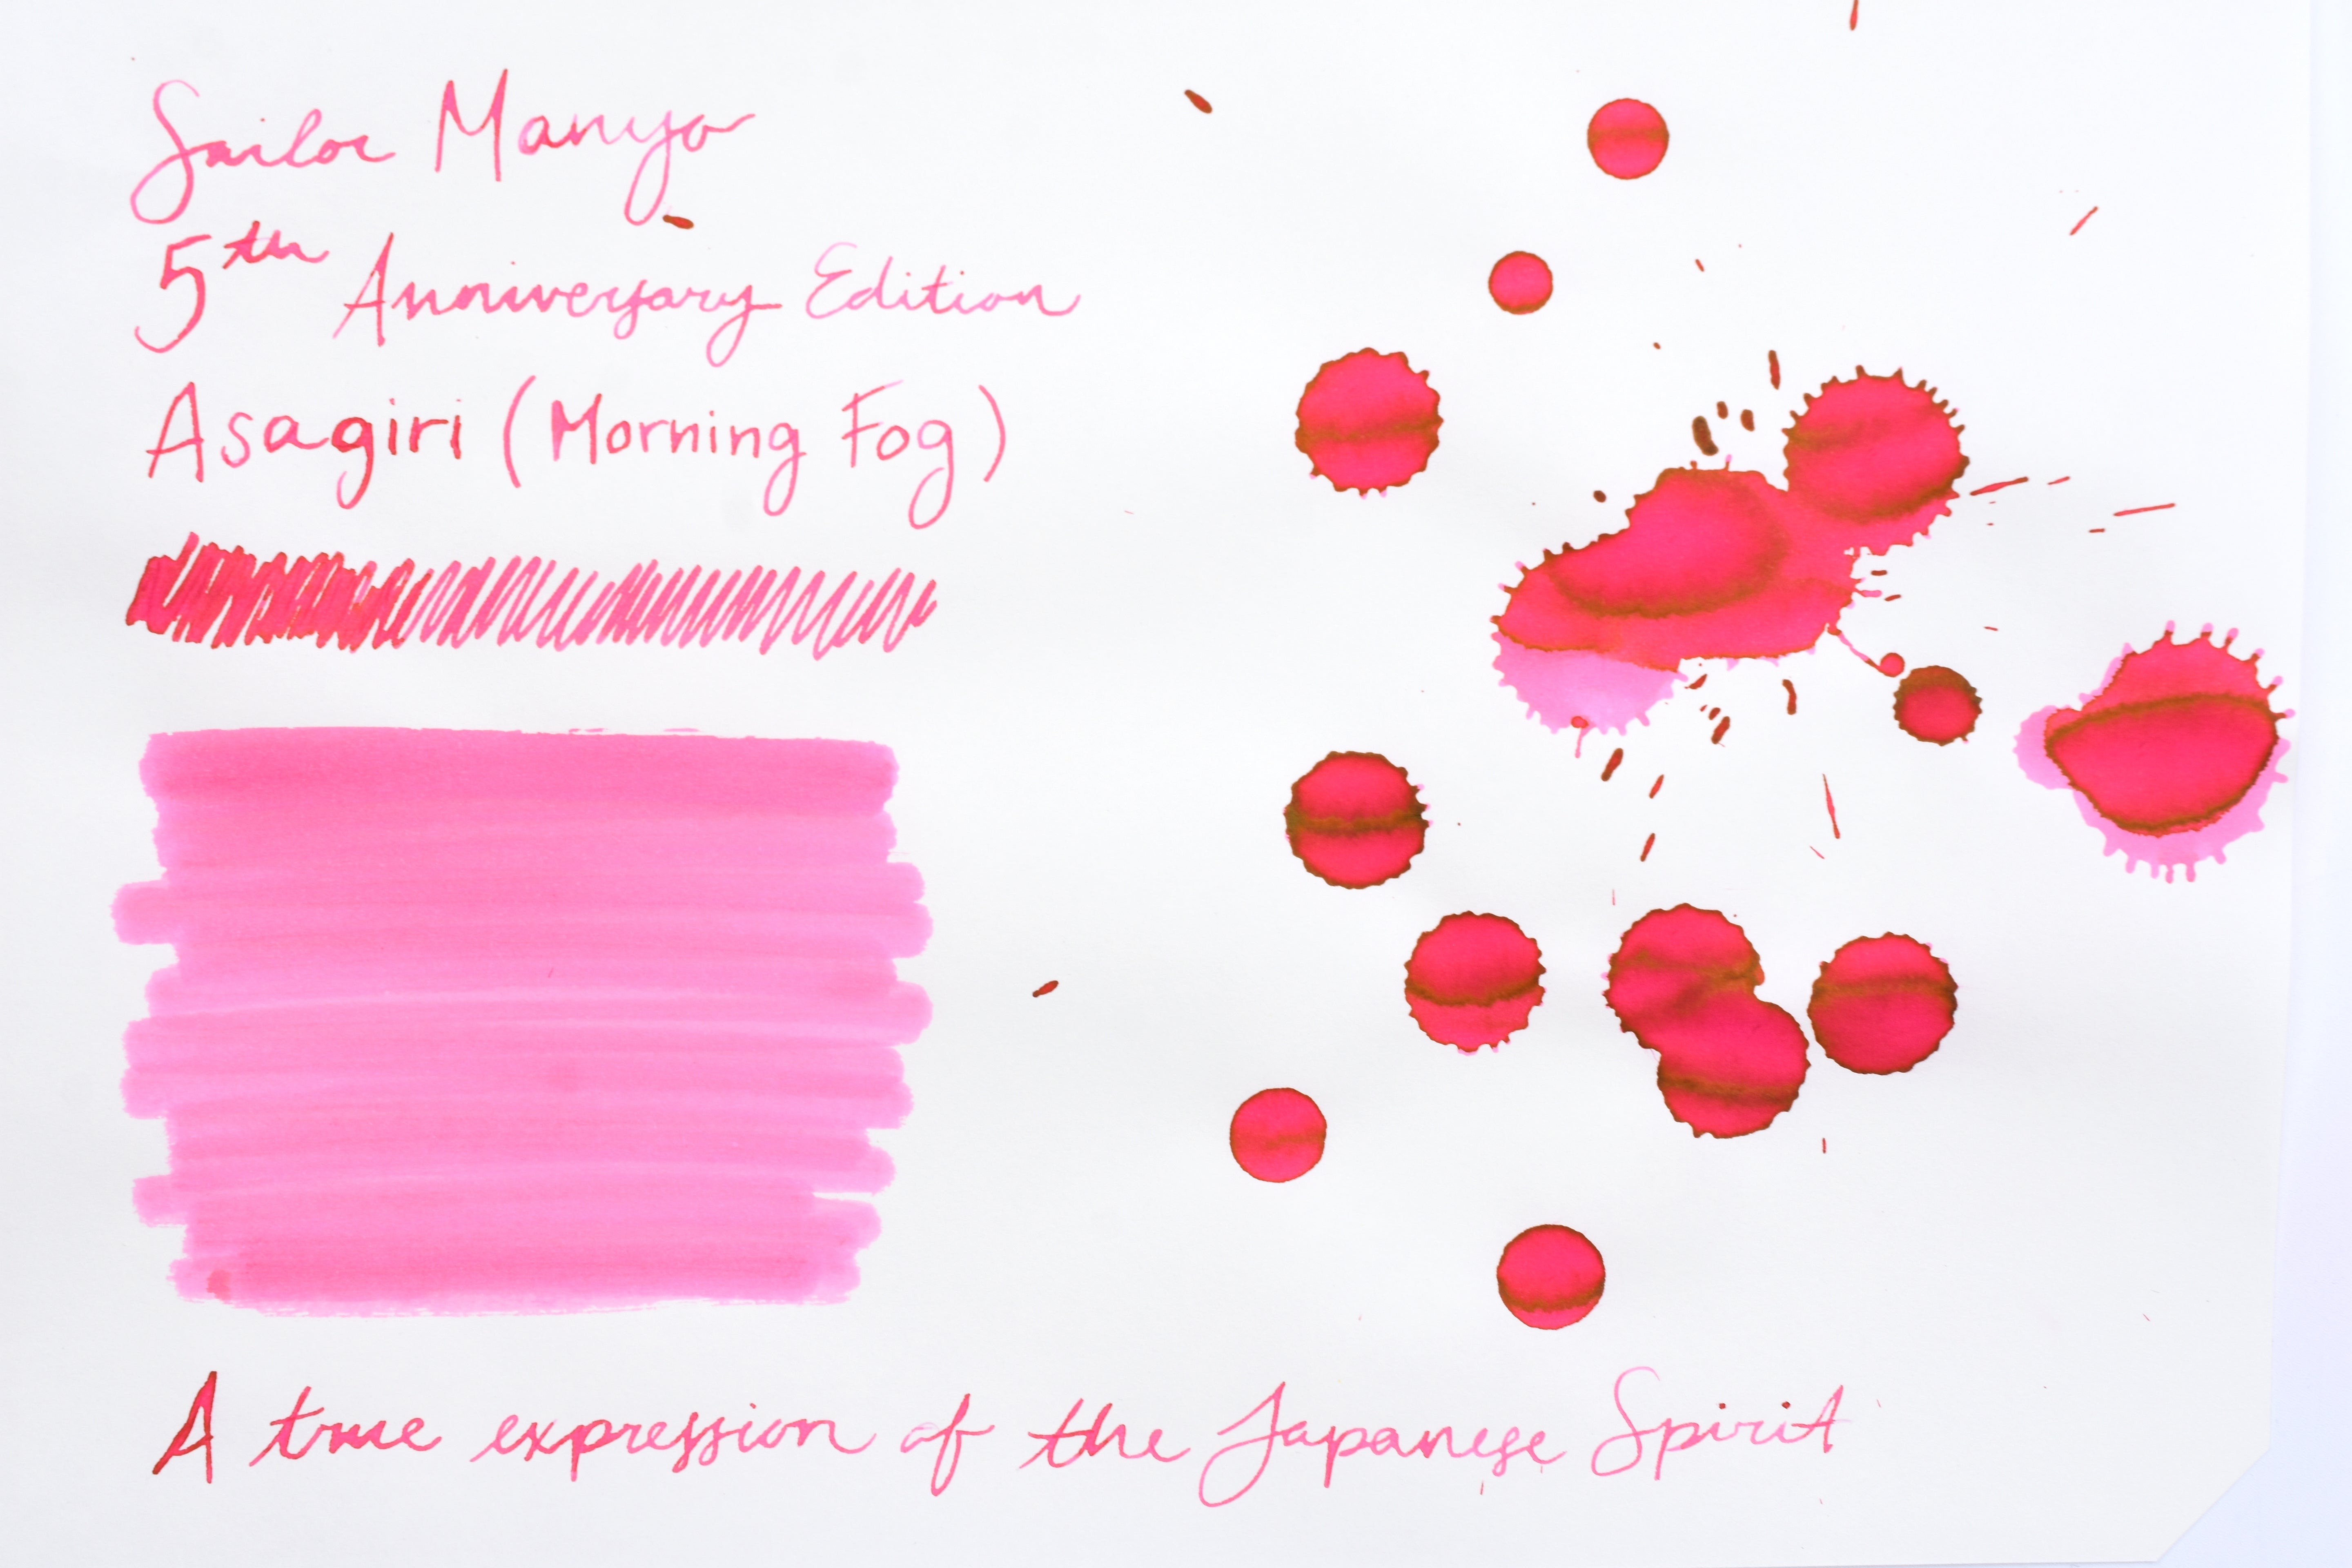 Sailor Manyo
5th Anniversary Edition
Asagiri (Morning Fog)
A true expression of the Japanese Spirit